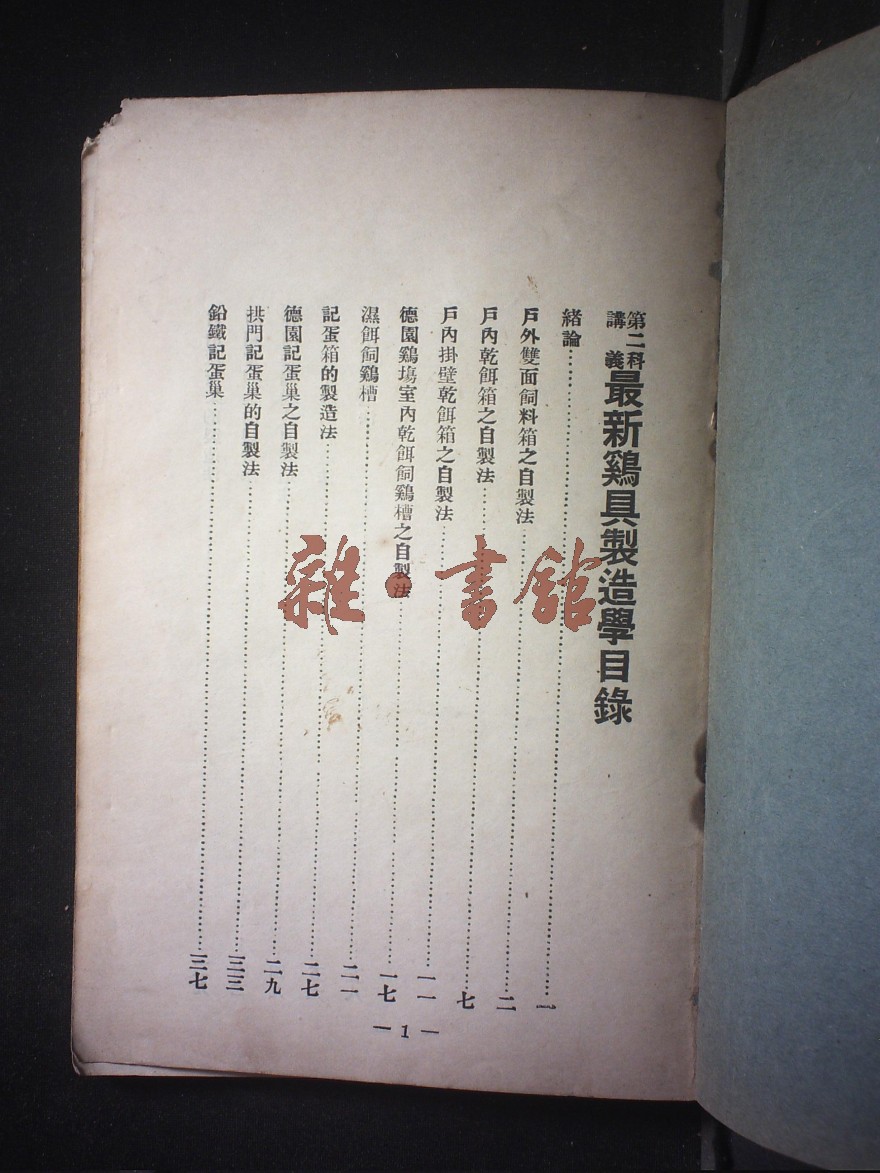 第二科講義最新鷄具製造學目錄
緒論……一
戶外雙面飼料箱之自製法……二
戶內乾餌箱之自製法……七
戶內掛壁乾餌箱之自製法……一一
德園鷄塲室內乾餌飼鷄槽之自製法……一七
濕餌飼鷄槽……二一
記蛋箱的製造法……二七
德園記蛋巢之自製法……二九
拱門記蛋巢的自製法……三三
鉛鐵記蛋巢……三七
—1—
雜·書館